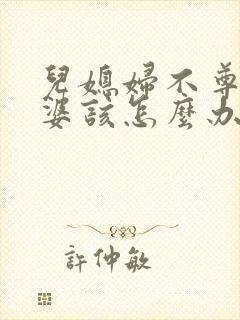 兒媳婦不尊
婆該怎麼办
許仲敏